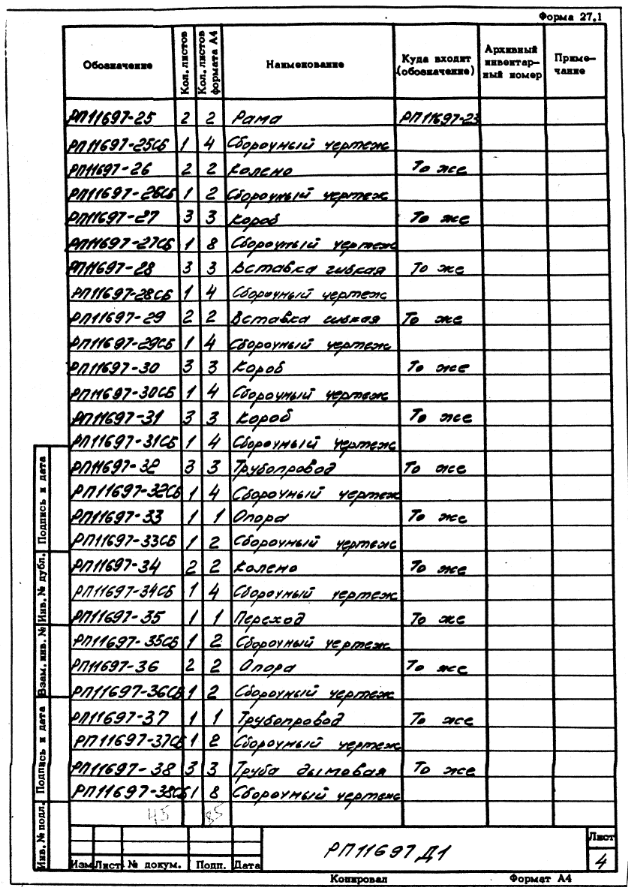 Форма 27.1
Обозначение Кол. листов Кол. листов формата А4 Наименование Куда входит (обозначение) Архивный инвентарный номер Примечание
РП11697-25 2 2 Рама РП11697-23
РП11697-25СБ 1 4 Сборочный чертеж
РП11697-26 2 2 Колено То же
РП11697-26СБ 1 2 Сборочный чертеж
РП11697-27 3 3 Короб То же
РП11697-27СБ 1 8 Сборочный чертеж
РП11697-28 3 3 Вставка гибкая То же
РП11697-28СБ 1 4 Сборочный чертеж
РП11697-29 2 2 Вставка гибкая То же
РП11697-29СБ 1 4 Сборочный чертеж
РП11697-30 3 3 Короб То же
РП11697-30СБ 1 4 Сборочный чертеж
РП11697-31 3 3 Короб То же
РП11697-31СБ 1 4 Сборочный чертеж
РП11697-32 3 3 Трубопровод То же
РП11697-32СБ 1 4 Сборочный чертеж
РП11697-33 1 1 Опора То же
РП11697-33СБ 1 2 Сборочный чертеж
РП11697-34 2 2 Колено То же
РП11697-34СБ 1 4 Сборочный чертеж
РП11697-35 1 1 Переход То же
РП11697-35СБ 1 2 Сборочный чертеж
РП11697-36 2 2 Опора То же
РП11697-36СБ 1 2 Сборочный чертеж
РП11697-37 1 1 Трубопровод То же
РП11697-37СБ 1 2 Сборочный чертеж
РП11697-38 3 3 Труба дымовая То же
РП11697-38СБ 1 8 Сборочный чертеж
45 85
Инв. № подл. Подпись и дата Взам. инв. № Инв. № дубл. Подпись и дата
Изм Лист № докум. Подп. Дата
РП11697 Д1
Лист
4
Копировал Формат А4